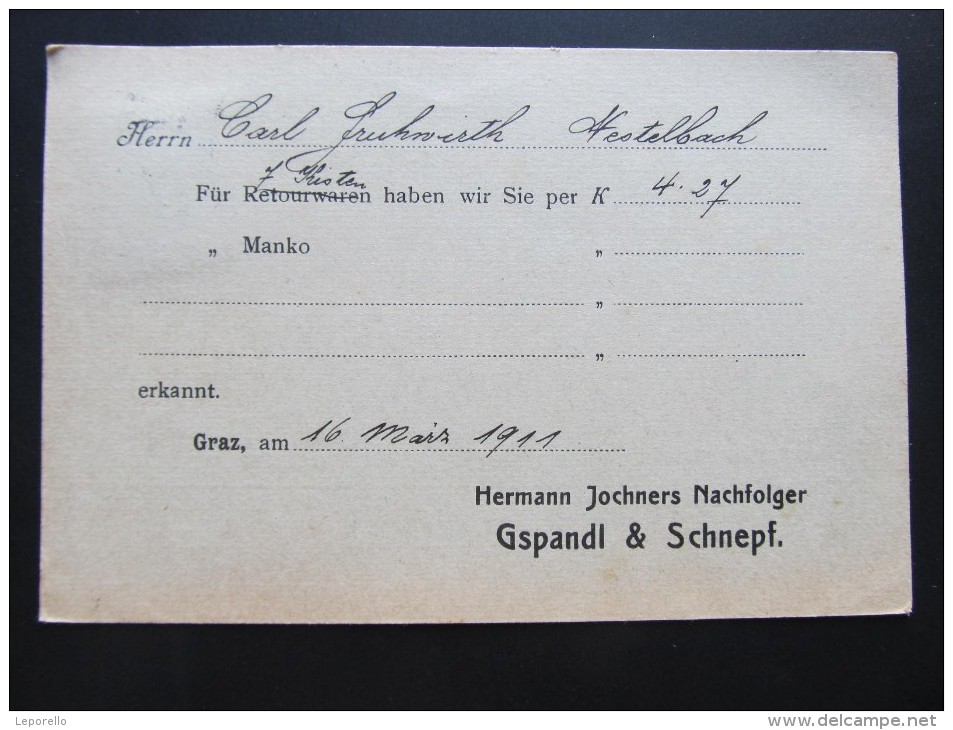 Herrn Carl Fruhwirth Nestelbach
7 Kisten
Für Retourwaren haben wir Sie per K 4.27
„ Manko „
„
„
erkannt.
Graz, am 16. März 1911
Hermann Jochners Nachfolger
Gspandl & Schnepf.
Leporello
www.delcampe.net